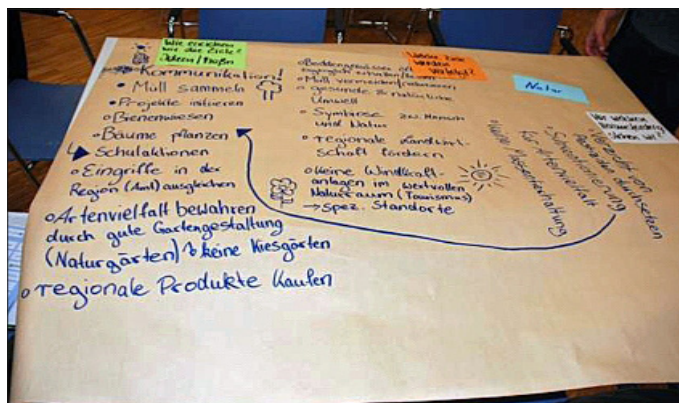 Wie erreichen
wir die Ziele?
Ideen / Maßn.
Kommunikation!
• Müll sammeln
• Projekte initiieren
• Bienenwiesen
• Bäume pflanzen
Schulaktionen
• Eingriffe in der
Region (Amt) ausgleichen
• Artenvielfalt bewahren
durch gute Gartengestaltung
(Naturgärten) keine Kiesgärten
• regionale Produkte kaufen
Welche Ziele
werden
verfolgt?
• Müll vermeiden
• gesunde & natürliche
Umwelt
• Symbiose zw. Mensch
und Natur
• regionale Landwirt-
schaft fördern
• keine Windkraft-
anlagen im wertvollen
Naturraum (Tourismus)
→ spez. Standorte
Natur
Vor welchen
stehen wir?
von
durchsetzen
Subventionierung
für Artenvielfalt
keine Massentierhaltung